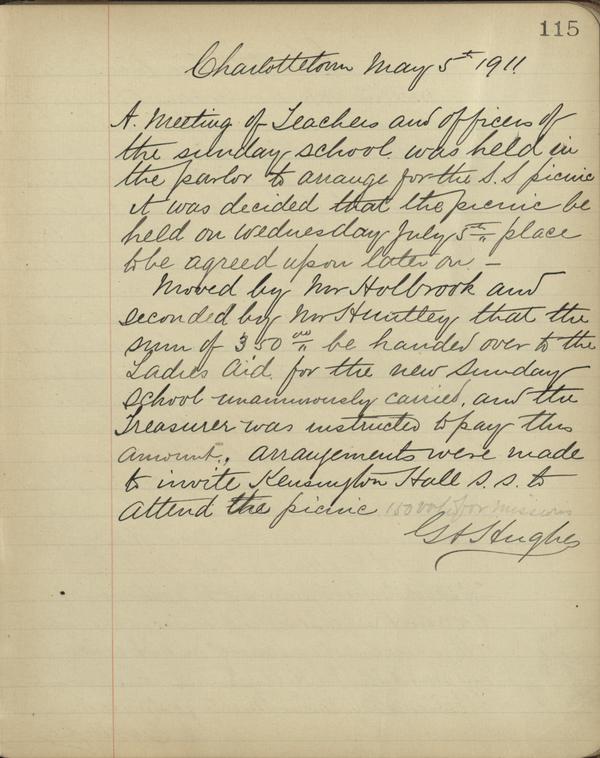 115
Charlottetown May 5th 1911
A. Meeting of Teachers and officers of
the sunday school. was held in
the parlor to arrange for the S.S picnic
it was decided that the picnic be
held on wednesday July 5th place
to be agreed upon later on –
Moved by Mr Holbrook and
seconded by Mr Huntley that the
sum of 350 00 be handed over to the
Ladies Aid. for the new Sunday
school unanimously carried, and the
Treasurer was instructed to pay this
amount. arrangements were made
to invite Kensington Hall S.S. to
attend the picnic for missions
G A Hughes